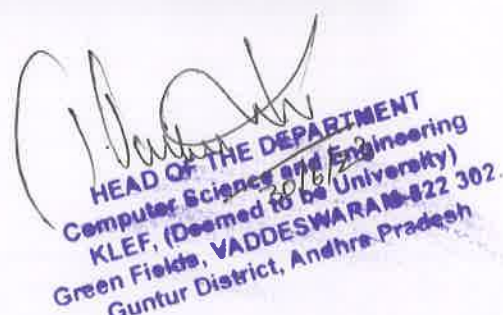 HEAD OF THE DEPARTMENT
Computer Science and Engineering
30/6/23
KLEF, (Deemed to be University)
Green Fields, VADDESWARAM-522 302.
Guntur District, Andhra Pradesh